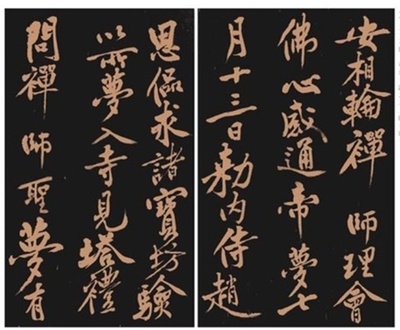 安相輪禪 師理會
佛心感通帝夢七
月十三日勑内侍趙
思偘求諸寶坊驗
以所夢入寺見塔禮
問禪 師聖夢有